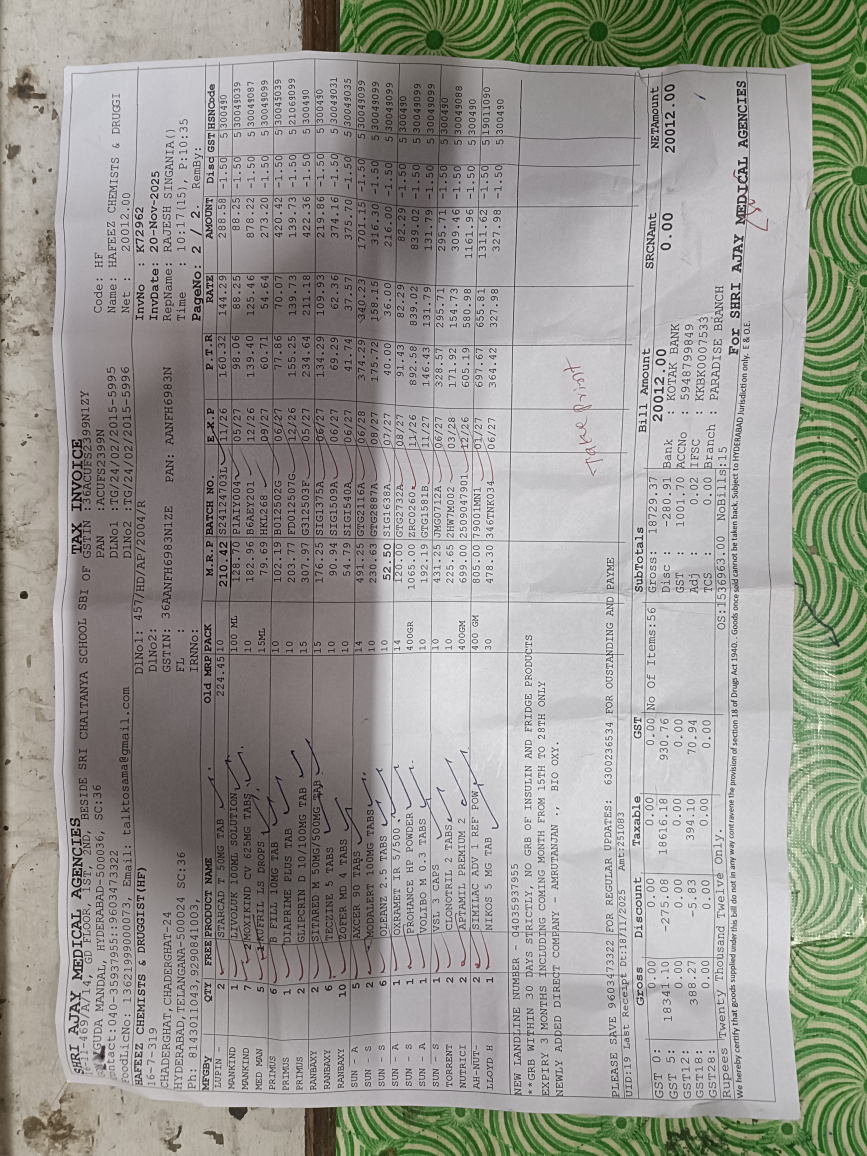 SHRI AJAY MEDICAL AGENCIES
TAX INVOICE
GD FLOOR, 1ST, 2ND, BESIDE SRI CHAITANYA SCHOOL SBI OF
GUDA, MANDAL, HYDERABAD-500036, SC:36
040-35937955::9603473322
FoodLicNo: 13621999000073, Email: talktosama@gmail.com
GSTIN :36ACUFS2399N1ZY
PAN :ACUFS2399N
DLNo1 :TG/24/02/2015-5995
DLNo2 :TG/24/02/2015-5996
Code: HF
Name: HAFEEZ CHEMISTS & DRUGGI
Net : 20012.00
HAFEEZ CHEMISTS & DRUGGIST(HF)
16-7-319
CHADERGHAT, CHADERGHAT-24
HYDERABAD, TELANGANA-500024 SC:36
Ph: 8143011043,9290841003,
DlNo1: 457/HD/AP/2004/R
DlNo2:
GSTIN: 36AANFH6983N1ZE PAN: AANFH6983N
FL :
IRNNo:
InvNo : K72962
InvDate: 20-Nov-2025
RepName: RAJESH SINGANIA()
Time : 10:17(15), P:10:35
PageNo: 2 / 2 RemBy:
MFGBy QTY FREE PRODUCT NAME Old MRP PACK M.R.P BATCH NO. E.X.P P.T.R RATE AMOUNT Disc GST HSNCode
LUPIN - 2 STARCAD T 50MG TAB 224.45 10 210.42 S24124703L 11/26 160.32 144.29 288.58 -1.50 5 300490
MANKIND 1 LIVOLUK 100ML SOLUTION 100 ML 128.70 L1AIY004 05/27 98.06 88.25 88.25 -1.50 5 30049039
MANKIND 7 MOXIKIND CV 625MG TABS 10 182.96 B6AEY201 12/26 139.40 125.46 878.22 -1.50 5 30049087
MED MAN 5 KUFRIL LS DROPS 15ML 79.69 HKL268 09/27 60.71 54.64 273.20 -1.50 5 30049099
PRIMUS 6 B FILL 10MG TAB 10 102.19 BO12502G 06/27 77.86 70.07 420.42 -1.50 5 30045039
PRIMUS 1 DIAPRIME PLUS TAB 10 203.77 FDO12507G 12/26 155.25 139.73 139.73 -1.50 5 21069099
PRIMUS 2 GLIPCRIN D 10/100MG TAB 15 307.97 G312503F 05/27 234.64 211.18 422.36 -1.50 5 300490
RANBAXY 2 SITARED M 50MG/500MG TAB 15 176.25 SIG1375A 06/27 134.29 109.93 219.86 -1.50 5 300490
RANBAXY 6 TECZINE 5 TABS 10 90.94 SIG1509A 06/27 69.29 62.36 374.16 -1.50 5 30049031
RANBAXY 10 ZOFER MD 4 TABS 10 54.79 SIG1540A 06/27 41.74 37.57 375.70 -1.50 5 30049035
SUN - A 5 AXCER 90 TABS 14 491.25 GTG2116A 06/28 374.29 340.23 1701.15 -1.50 5 30049099
SUN - S 2 MODALERT 100MG TABS 10 230.63 GTG2887A 08/27 175.72 158.15 316.30 -1.50 5 30049099
SUN - S 6 OLEANZ 2.5 TABS 10 52.50 SIG1638A 07/27 40.00 36.00 216.00 -1.50 5 30049099
SUN - A 1 OXRAMET IR 5/500 14 120.00 GTG2732A 08/27 91.43 82.29 82.29 -1.50 5 300490
SUN - S 1 PROHANCE HP POWDER 400GR 1065.00 ZRC0260 11/26 892.58 839.02 839.02 -1.50 5 30049099
SUN - A 1 VOLIBO M 0.3 TABS 10 192.19 GTG1581B 11/27 146.43 131.79 131.79 -1.50 5 30049099
SUN - S 1 VSL 3 CAPS 10 431.25 JMG0712A 06/27 328.57 295.71 295.71 -1.50 5 300490
TORRENT 2 CLONOTRIL 2 TABS 10 225.65 2HW7M002 03/28 171.92 154.73 309.46 -1.50 5 30049088
NUTRICI 2 APTAMIL PREMIUM 2 400GM 699.00 2509047901 12/26 605.19 580.98 1161.96 -1.50 5 300490
AH-NUT- 2 SIMILAC ADV 1 REF POW 400 GM 805.00 79001MN1 01/27 697.67 655.81 1311.62 -1.50 5 19011090
LLOYD H 1 NIKOS 5 MG TAB 30 478.30 346TNK034 06/27 364.42 327.98 327.98 -1.50 5 300490
NEW LANDLINE NUMBER - 04035937955
**GRB WITHIN 30 DAYS STRICTLY, NO GRB OF INSULIN AND FRIDGE PRODUCTS
EXPIRY 3 MONTHS INCLUDING COMING MONTH FROM 15TH TO 28TH ONLY
NEWLY ADDED DIRECT COMPANY - AMRUTANJAN ., BIO OXY.
Take Print
PLEASE SAVE 9603473322 FOR REGULAR UPDATES: 6300236534 FOR OUSTANDING AND PAYME
UID:19 Last Receipt Dt:18/11/2025 Amt:251083
Gross Discount Taxable GST
GST 0: 0.00 0.00 0.00 0.00
GST 5: 18341.10 -275.08 18616.18 930.76
GST12: 0.00 0.00 0.00 0.00
GST18: 388.27 -5.83 394.10 70.94
GST28: 0.00 0.00 0.00 0.00
No Of Items:56
SubTotals
Gross: 18729.37
Disc : -280.91
GST : 1001.70
Adj : 0.02
TCS : 0.00
Bill Amount
20012.00
Bank : KOTAK BANK
ACCNo : 5948799849
IFSC : KKBK0007533
Branch : PARADISE BRANCH
SRCNAmt
0.00
NETAmount
20012.00
Rupees Twenty Thousand Twelve Only.
OS:1536963.00 NoBills:15
For SHRI AJAY MEDICAL AGENCIES
We hereby certify that goods supplied under this bill do not in any way contravene the provision of section 18 of Drugs Act 1940. . Goods once sold cannot be taken back. Subject to HYDERABAD Jurisdiction only. E & O.E.